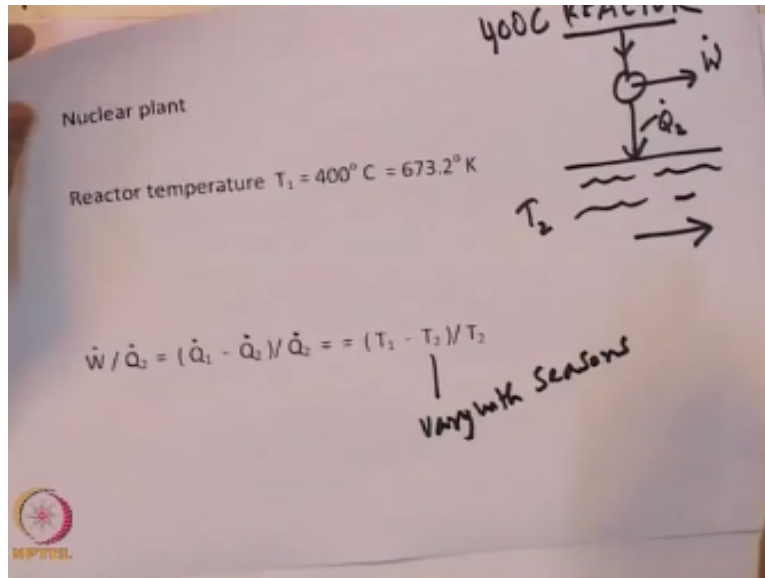 400C REACTOR
Ẇ
Nuclear plant
Q̇₂
Reactor temperature T₁ = 400° C = 673.2° K
T₂
Ẇ / Q̇₂ = (Q̇₁ - Q̇₂)/ Q̇₂ = = (T₁ - T₂)/ T₂
vary with seasons
NPTEL